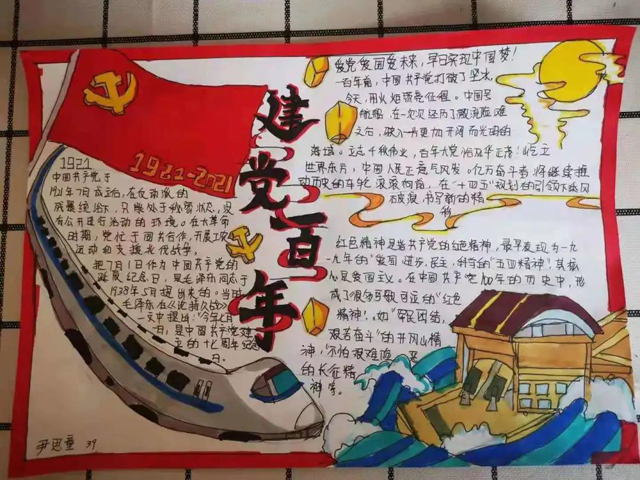 建党百年
1921-2021
爱党爱国爱未来,早日实现中国梦!
一百年前,中国共产党打破了坚冰,
今天,用火炬照亮征程。中国号
航船,在一次次经历了激流险滩
之后,驶入一片更加开阔而光明的
海域。立志千秋伟业,百年大党恰风华正茂!屹立
世界东方,中国人民正意气风发。亿万奋斗者将继续推
动历史的车轮滚滚向前,在“十四五”规划的引领下乘风
破浪,书写新的精
1921
中国共产党于
1921年7月成立后,在反动派的
残暴统治下,只能处于秘密状态,没
有公开进行活动的环境。在大革命
时期,党忙于国共合作,开展工农
运动和支援北伐战争。
把7月1日作为中国共产党的
诞辰纪念日,是毛泽东同志于
月38年5月提出来的。当时
毛泽东在《论持久战》
一文中提出:“今年七月
一日,是中国共产党建
立的十七周年纪念
日。
红色精神足当共产党的红色精神,最早表现为一九
一九年的“爱国进步,民主,科学的“五四精神”,其核
心是爱国主义。在中国共产党100年的历史中,形
成了很多可歌可泣的“红色
精神”。如“军民团结,
艰苦奋斗”的井冈山精
神,“不怕艰难险
的长征精
神等。
39